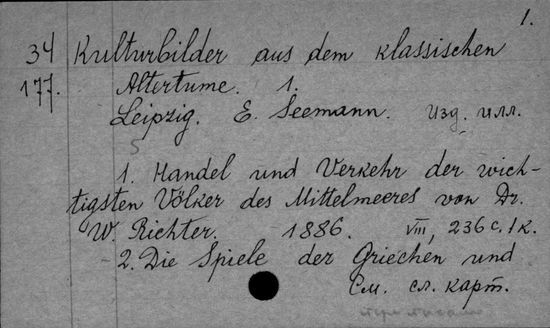 1.
34 Kulturbilder aus dem klassischen
177. Altertume. 1.
Leipzig. E. Seemann. Изд. илл.
5
1. Handel und Verkehr der wich-
tigsten Völker des Mittelmeeres von Dr.
W. Richter. 1886. VIII, 236 с. 1 к.
2. Die Spiele der Griechen und
См. сл. карт.